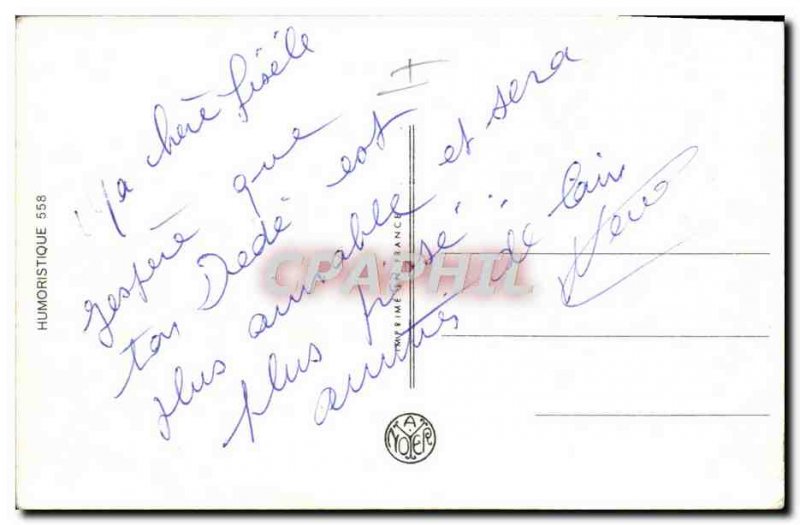 HUMORISTIQUE 558
Ma chère Gisèle
j'espère que
ton Dédé est
plus aimable et sera
plus frisé...
amitiés de
IMPRIMÉ EN FRANCE
CPAPHIL
A. NOYER